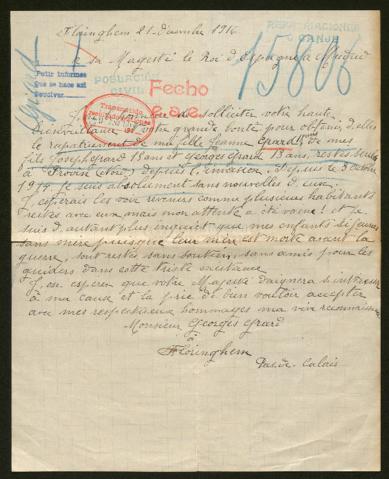 Floringhem 21 Décembre 1916
REPATRIACIONES
O CANJE
15806
A sa Majesté le Roi d'Espagne à Madrid
Pedir informes
Que se nace así
Devolver.
POBLACIÓN
CIVIL
Fecho
J'ai l'honneur de solliciter votre haute
bienveillance et votre grande bonté pour obtenir d'elles
le rapatriement de ma fille Jeanne Gérard et de mes
fils Joseph Gérard 18 ans et Georges Gérard 13 ans, restés seuls
à Provin (Nord) depuis l'invasion. Depuis le 3 octobre
1914 je suis absolument sans nouvelles d'eux.
J'espérais les voir revenir comme plusieurs habitants
restés avec eux mais mon attente a été vaine ! et je
suis d'autant plus inquiet que mes enfants si jeunes
sans mère puisque leur mère est morte avant la
guerre, sont restés sans soutien, sans amis pour les
guider dans cette triste
J'ose espérer que votre Majesté daignera s'intéresser
à ma cause et la prie de bien vouloir accepter
avec mes respectueux hommages ma vive reconnaissance
Monsieur Georges Gérard
à
Floringhem
Pas de Calais